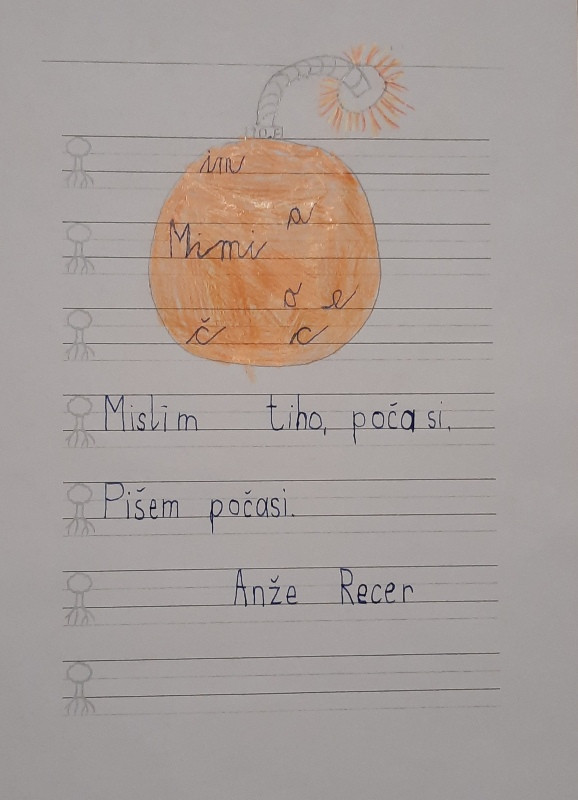 in
a
Mimi
o e
č c
Mislim tiho, počasi.
Pišem počasi.
Anže Recer